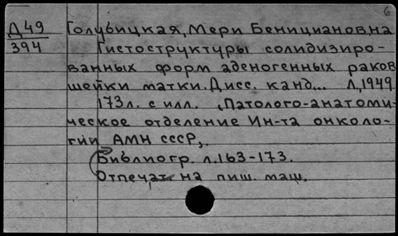 6
Д 49 Голубицкая, Мери Бенициановна
394 Гистоструктуры солидизиро-
ванных форм аденогенных раков
шейки матки. Дисс. канд... Л, 1949
173л. с илл. (Патолого-анатоми-
ческое отделение Ин-та онколо-
гии АМН СССР).
Библиогр. л.163-173.
Отпечат. на пиш. маш.